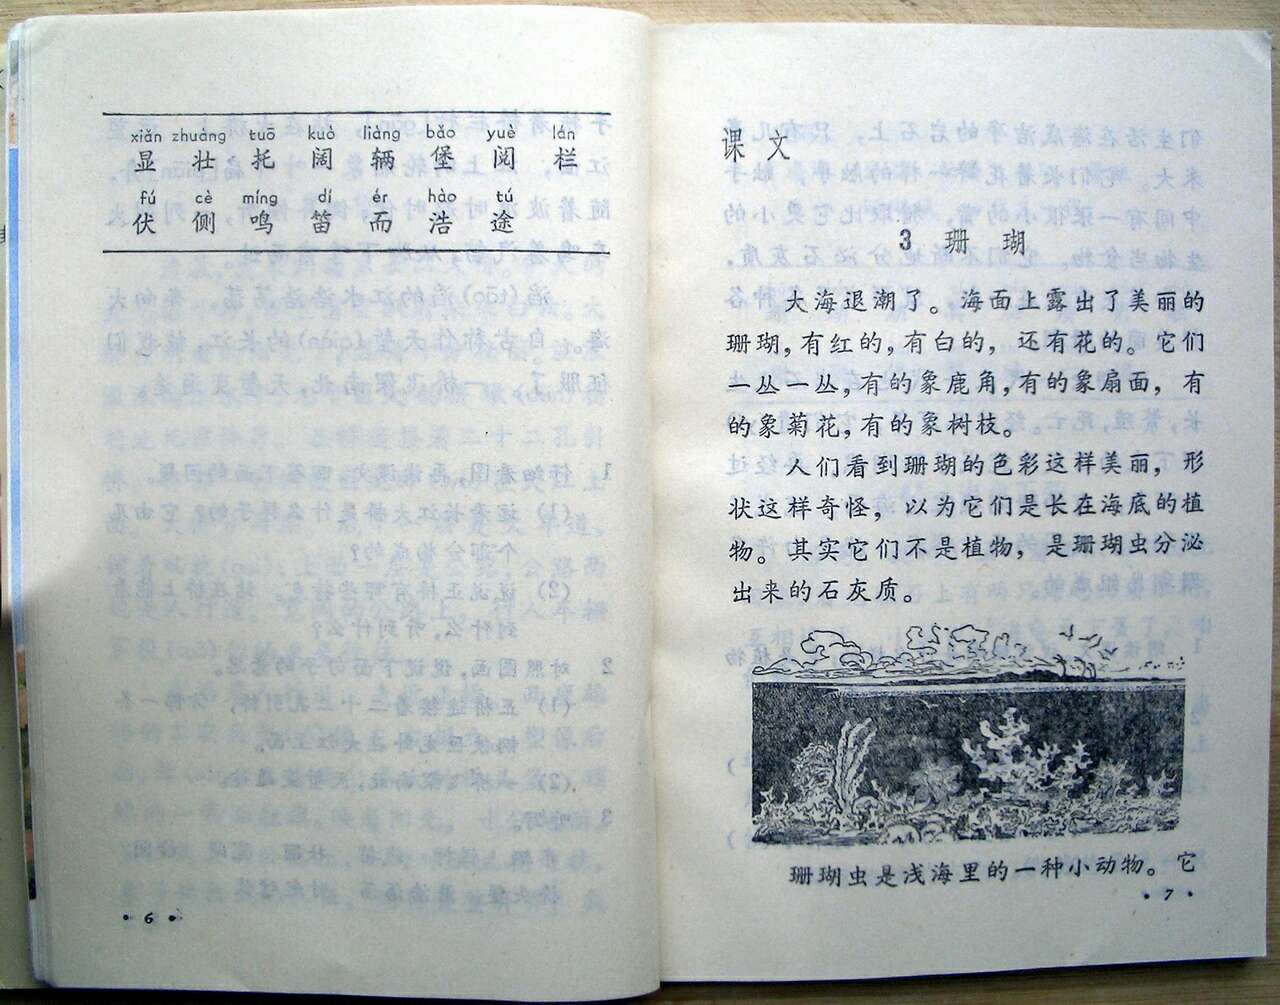 xiǎn zhuàng tuō kuò liàng bǎo yuè lán
显 壮 托 阔 辆 堡 阅 栏
fú cè míng dí ér hào tú
伏 侧 鸣 笛 而 浩 途
· 6 ·
课文
3 珊 瑚
大海退潮了。海面上露出了美丽的
珊瑚，有红的，有白的，还有花的。它们
一丛一丛，有的象鹿角，有的象扇面，有
的象菊花，有的象树枝。
人们看到珊瑚的色彩这样美丽，形
状这样奇怪，以为它们是长在海底的植
物。其实它们不是植物，是珊瑚虫分泌
出来的石灰质。
珊瑚虫是浅海里的一种小动物。它
· 7 ·